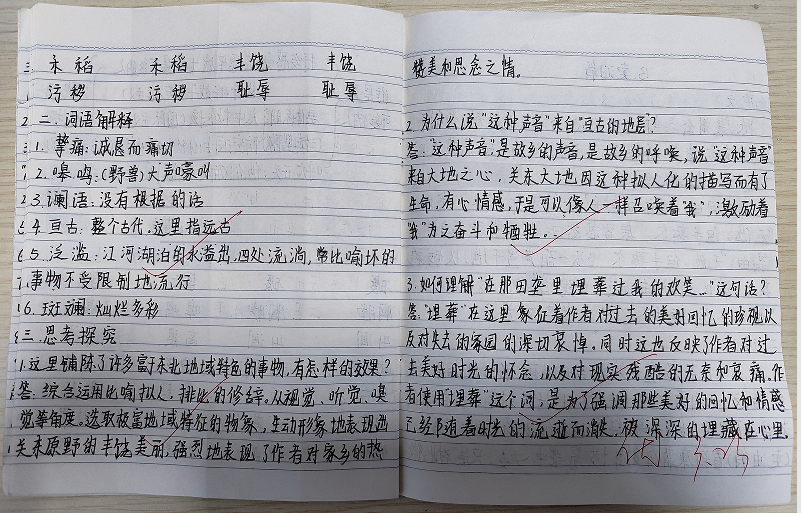 三. 禾稻 禾稻 丰饶 丰饶
污秽 污秽 耻辱 耻辱
二. 词语解释
1. 挚痛:诚恳而痛切
2. 嗥鸣:(野兽)大声嚎叫
3. 谰语:没有根据的话
4. 亘古:整个古代.这里指远古
5. 泛滥:江河湖泊的水溢出,四处流淌,常比喻坏的
事物不受限制地流行
6. 斑斓:灿烂多彩
三.思考探究
1.这里铺陈了许多富于东北地域特色的事物,有怎样的效果?
答:综合运用比喻拟人、排比的修辞,从视觉、听觉、嗅
觉等角度。选取极富地域特征的物象,生动形象地表现
关东原野的丰饶美丽,强烈地表现了作者对家乡的热
赞美和思念之情。
2.为什么说"这种声音"来自"亘古的地层"?
答:"这种声音",是故乡的声音,是故乡的呼唤,说"这种声音"
来自大地之心,关东大地因这种拟人化的描写而有了
生命,有心情感,于是可以像人一样召唤着"我",激励着
"我"为之奋斗和牺牲。
3.如何理解"在那田垄里埋葬过我的欢笑…"这句话?
答."埋葬"在这里象征着作者对过去的美好回忆的珍视以
及对失去的家园的深切哀悼。同时这也反映了作者对过
去美好时光的怀念,以及对现实残酷的无奈和哀痛,作
者使用"埋葬"这个词,是为了强调那些美好的回忆和情感
已经随着时光的流逝而消逝.被深深的埋藏在心里.
优